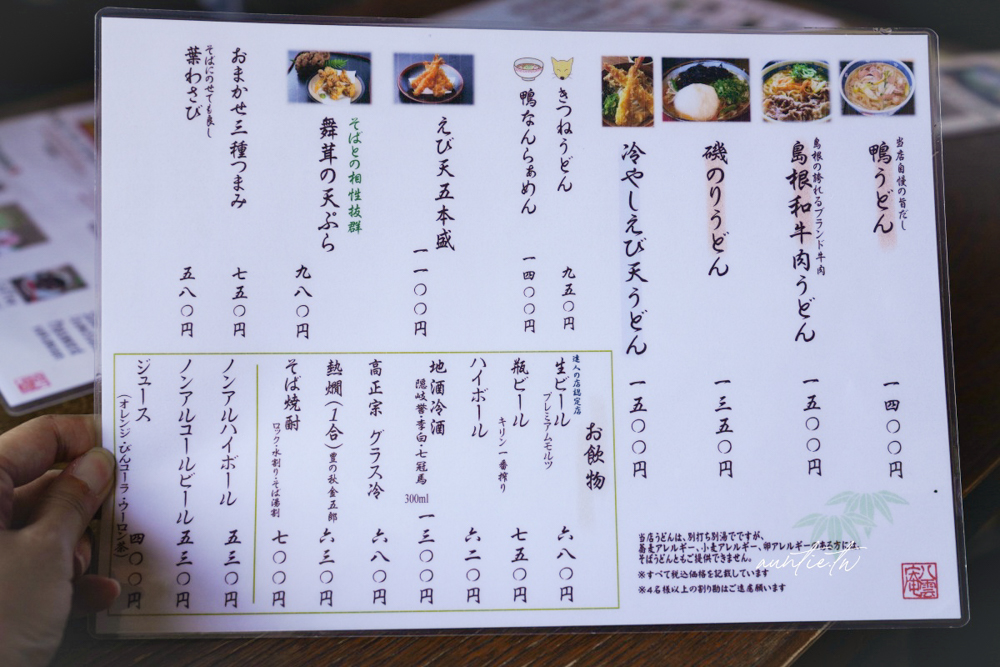 当店自慢の旨だし
鴨うどん
一四〇〇円
島根の誇れるブランド牛肉
島根和牛肉うどん
一五〇〇円
磯のりうどん
一三五〇円
冷やしえび天うどん
一五〇〇円
きつねうどん
九五〇円
鴨なんらぁめん
一四〇〇円
えび天五本盛
一一〇〇円
そばとの相性抜群
舞茸の天ぷら
九八〇円
おまかせ三種つまみ
七五〇円
そばにのせても良し
葉わさび
五八〇円
お飲物
達人の店認定店
生ビール
プレミアムモルツ
六八〇円
瓶ビール
キリン一番搾り
七五〇円
ハイボール
六二〇円
地酒冷酒
隠岐誉・李白・七冠馬
300ml
一三〇〇円
高正宗 グラス冷
六八〇円
熱燗(1合)豊の秋金五郎
六三〇円
そば焼酎
ロック・水割り・そば湯割
七〇〇円
ノンアルハイボール
五三〇円
ノンアルコールビール
五三〇円
ジュース
(オレンジ・びんコーラ・ウーロン茶)
四〇〇円
当店うどんは、別打ち別湯でですが、
蕎麦アレルギー、小麦アレルギー、卵アレルギーのある方には
そばうどんともご提供できません。
※すべて税込価格を記載しています
※4名様以上の割り勘はご遠慮願います
auntie.tw
八雲庵